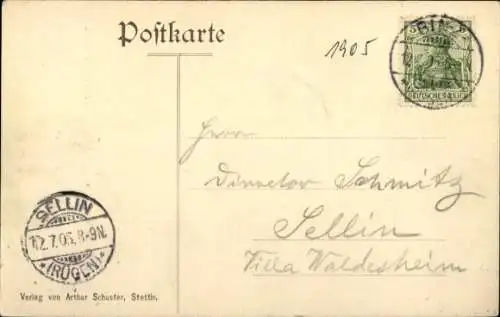 Postkarte
1905
BINZ
DEUTSCHES REICH
Herrn
Director Schmitz
Sellin
Villa Waldesheim
SELLIN
12.7.05. 8-9N.
*(RÜGEN)*
Verlag von Arthur Schuster, Stettin.